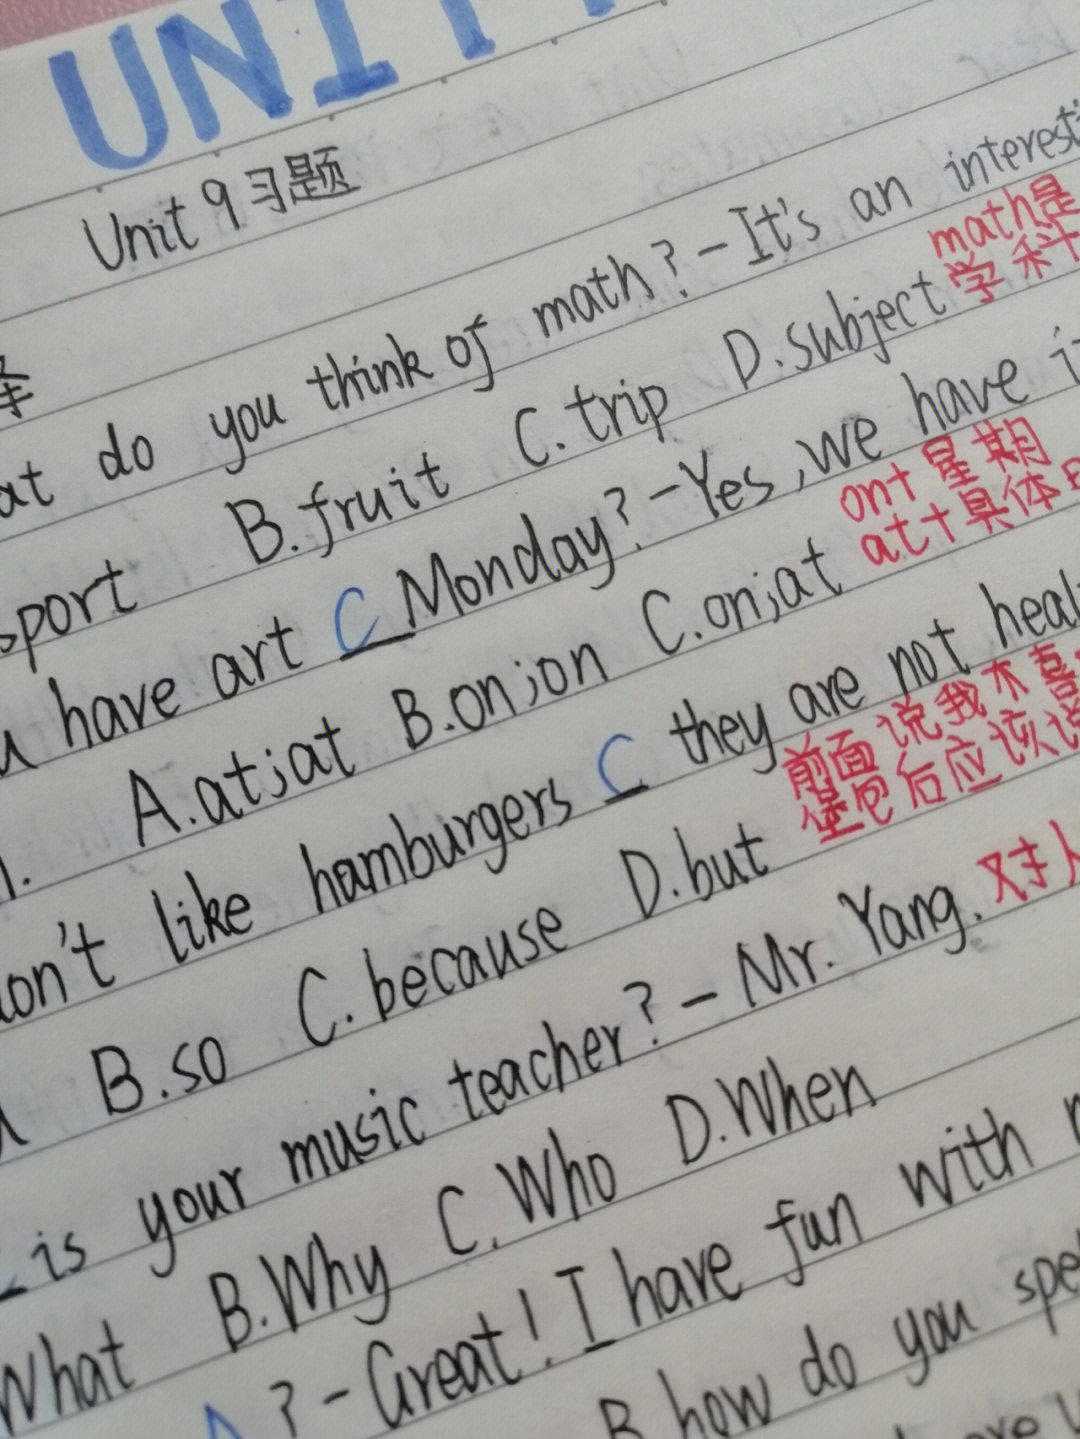 UNIT
Unit 9 习题
do you think of math? - It's an
math是
B.fruit C.trip D.subject 学科
have art C Monday? - Yes, we have
on+星期
A.at;at B.on;on C.on;at at+具体
like hamburgers C they are not
前面说我不喜
B.so C.because D.but 堡包后应该说
is your music teacher? - Mr. Yang. 对
What B.Why C.Who D.When
? - Great! I have fun with
B how do you